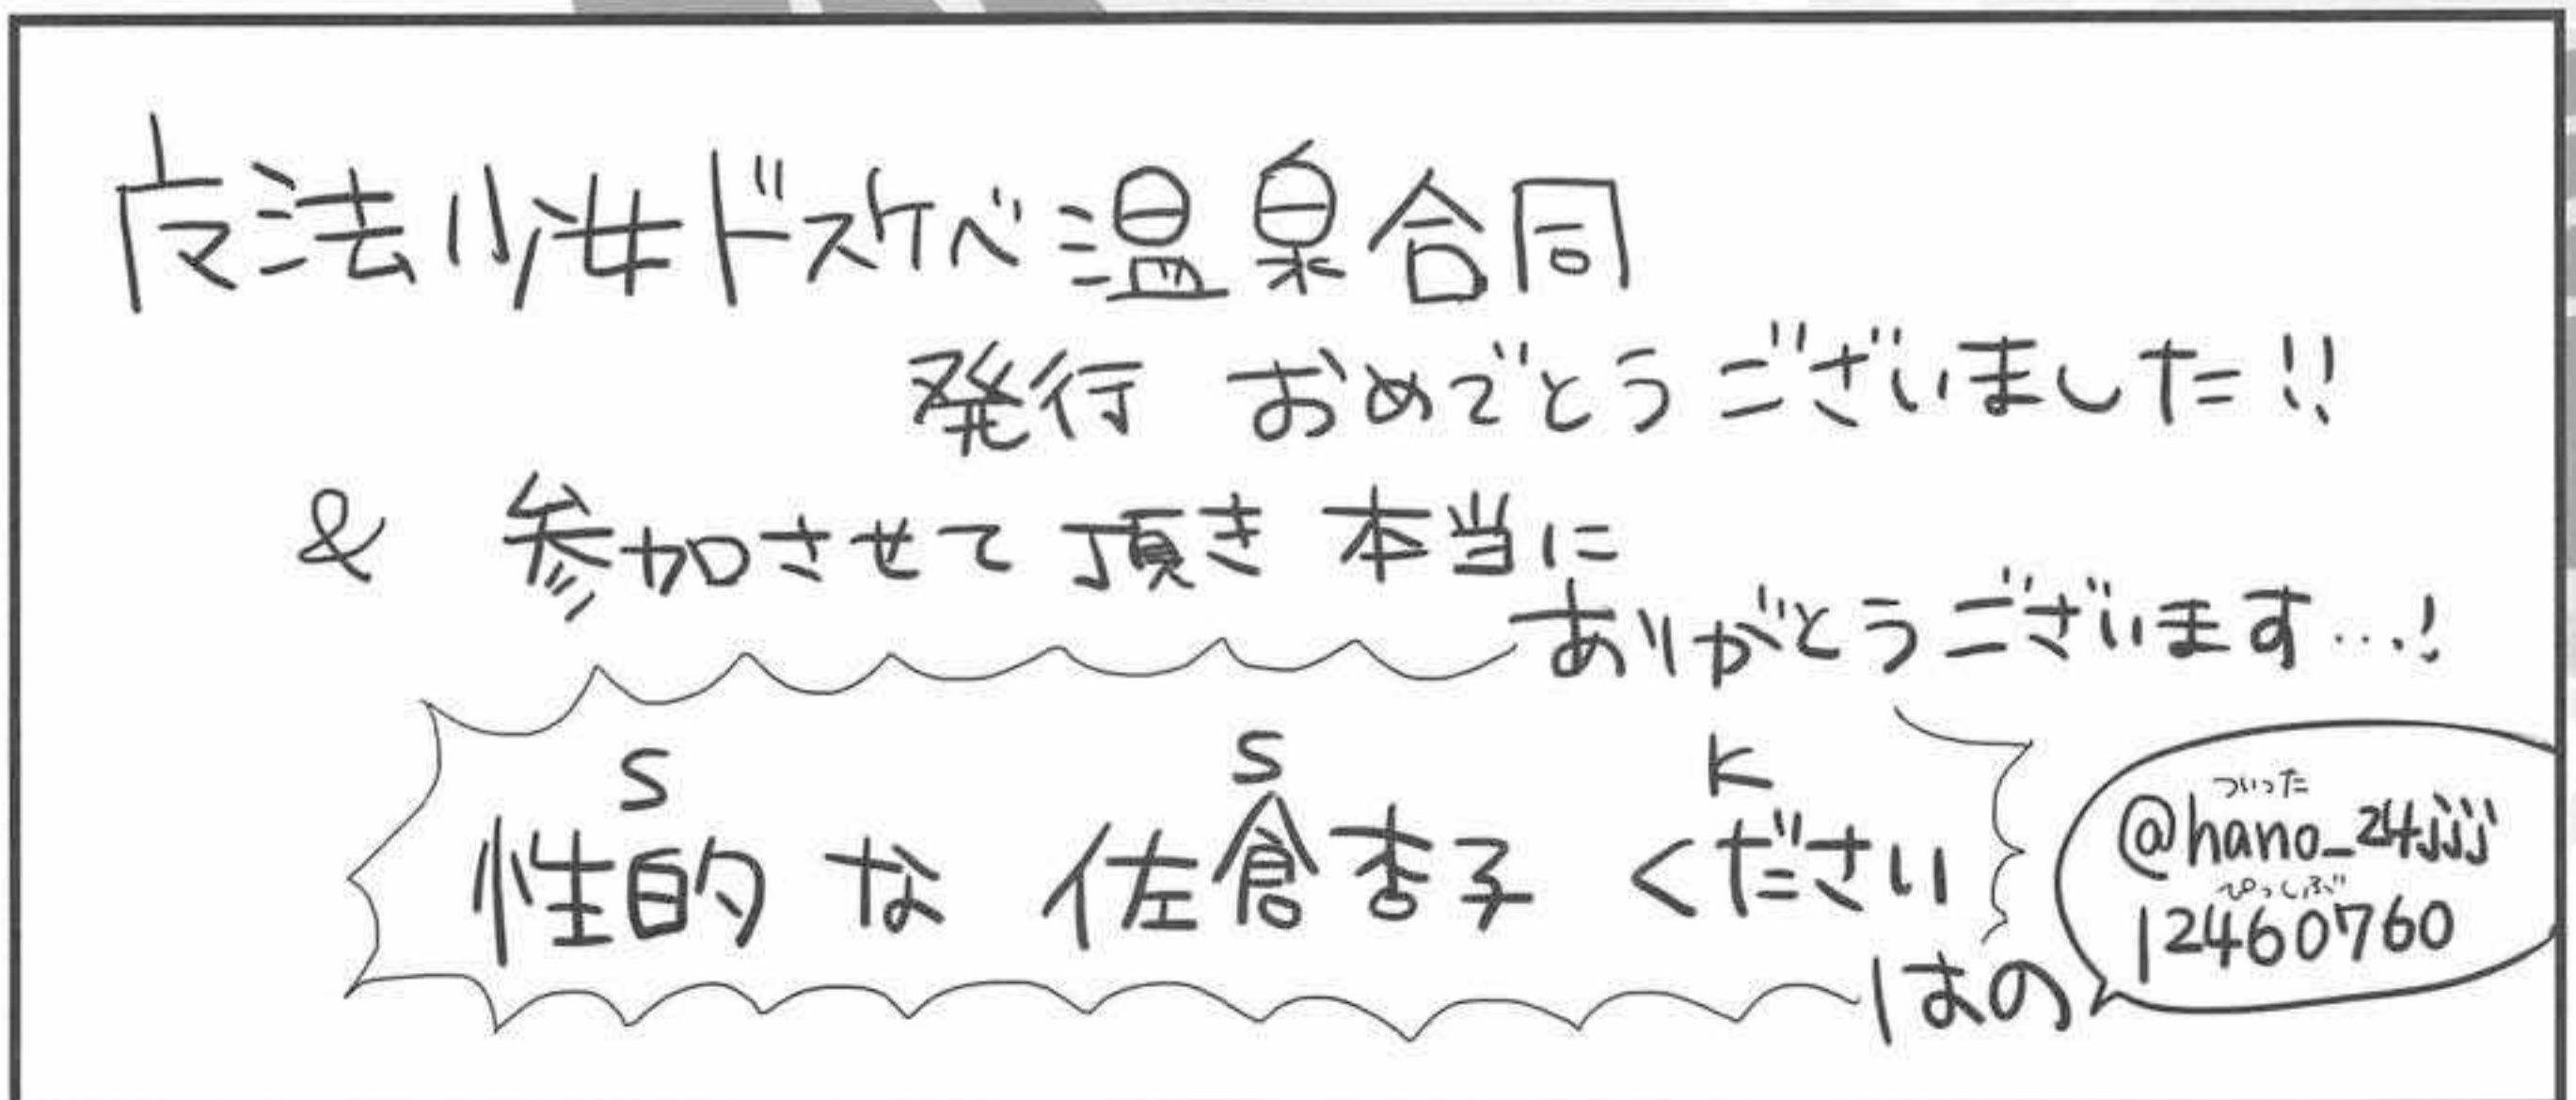 魔法少女ドスケベ温泉合同
発行 おめでとうございました!!
& 参加させて頂き 本当に
ありがとうございます…!
S S K
性的な 佐倉杏子 ください
はの
ついった
@hano_24jjj
ぴくしぶ
12460760